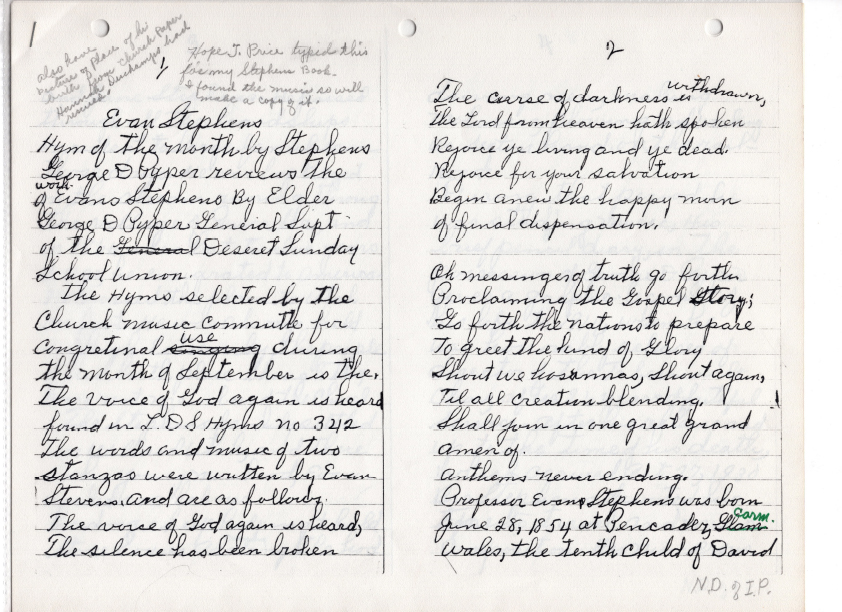 1
also have
picture of place of his
birth from Church Paper
Hannah Deuchamps had
Hope T. Price typid this
for my Stephens Book.
I found the music so will
make a copy of it.
Evan Stephens
Hym of the month by Stephens
George D Pyper reviews the
work
of Evans Stephens By Elder
George D Pyper General Supt
of the General Deseret Sunday
School Union.
The Hyms selected by the
Church music committe for
use
congretinal singing during
the month of September is the.
The voice of God again is heard
found in L.D S Hyms no 342
The words and music of two
stanzas were written by Evan
Stevens, and are as follows.
The voice of God again is heard,
The silence has been broken
2
withdrawn,
The curse of darkness is
The Lord from heaven hath spoken
Rejoice ye living and ye dead.
Rejoice for your salvation
Begin anew the happy morn
of final dispensation.
Oh messengers of truth go forth
Proclaiming the Gospel Story;
Go forth the nations to prepare
To greet the kind of Glory
Shout we hosannas, Shout again,
Til all creation blending.
Shall join in one great grand
amen of.
anthems never ending.
Professor Evans Stephens was born
Carm.
June 28, 1854 at Pencader, Glam.
Wales, the tenth child of David
N.D. of I.P.